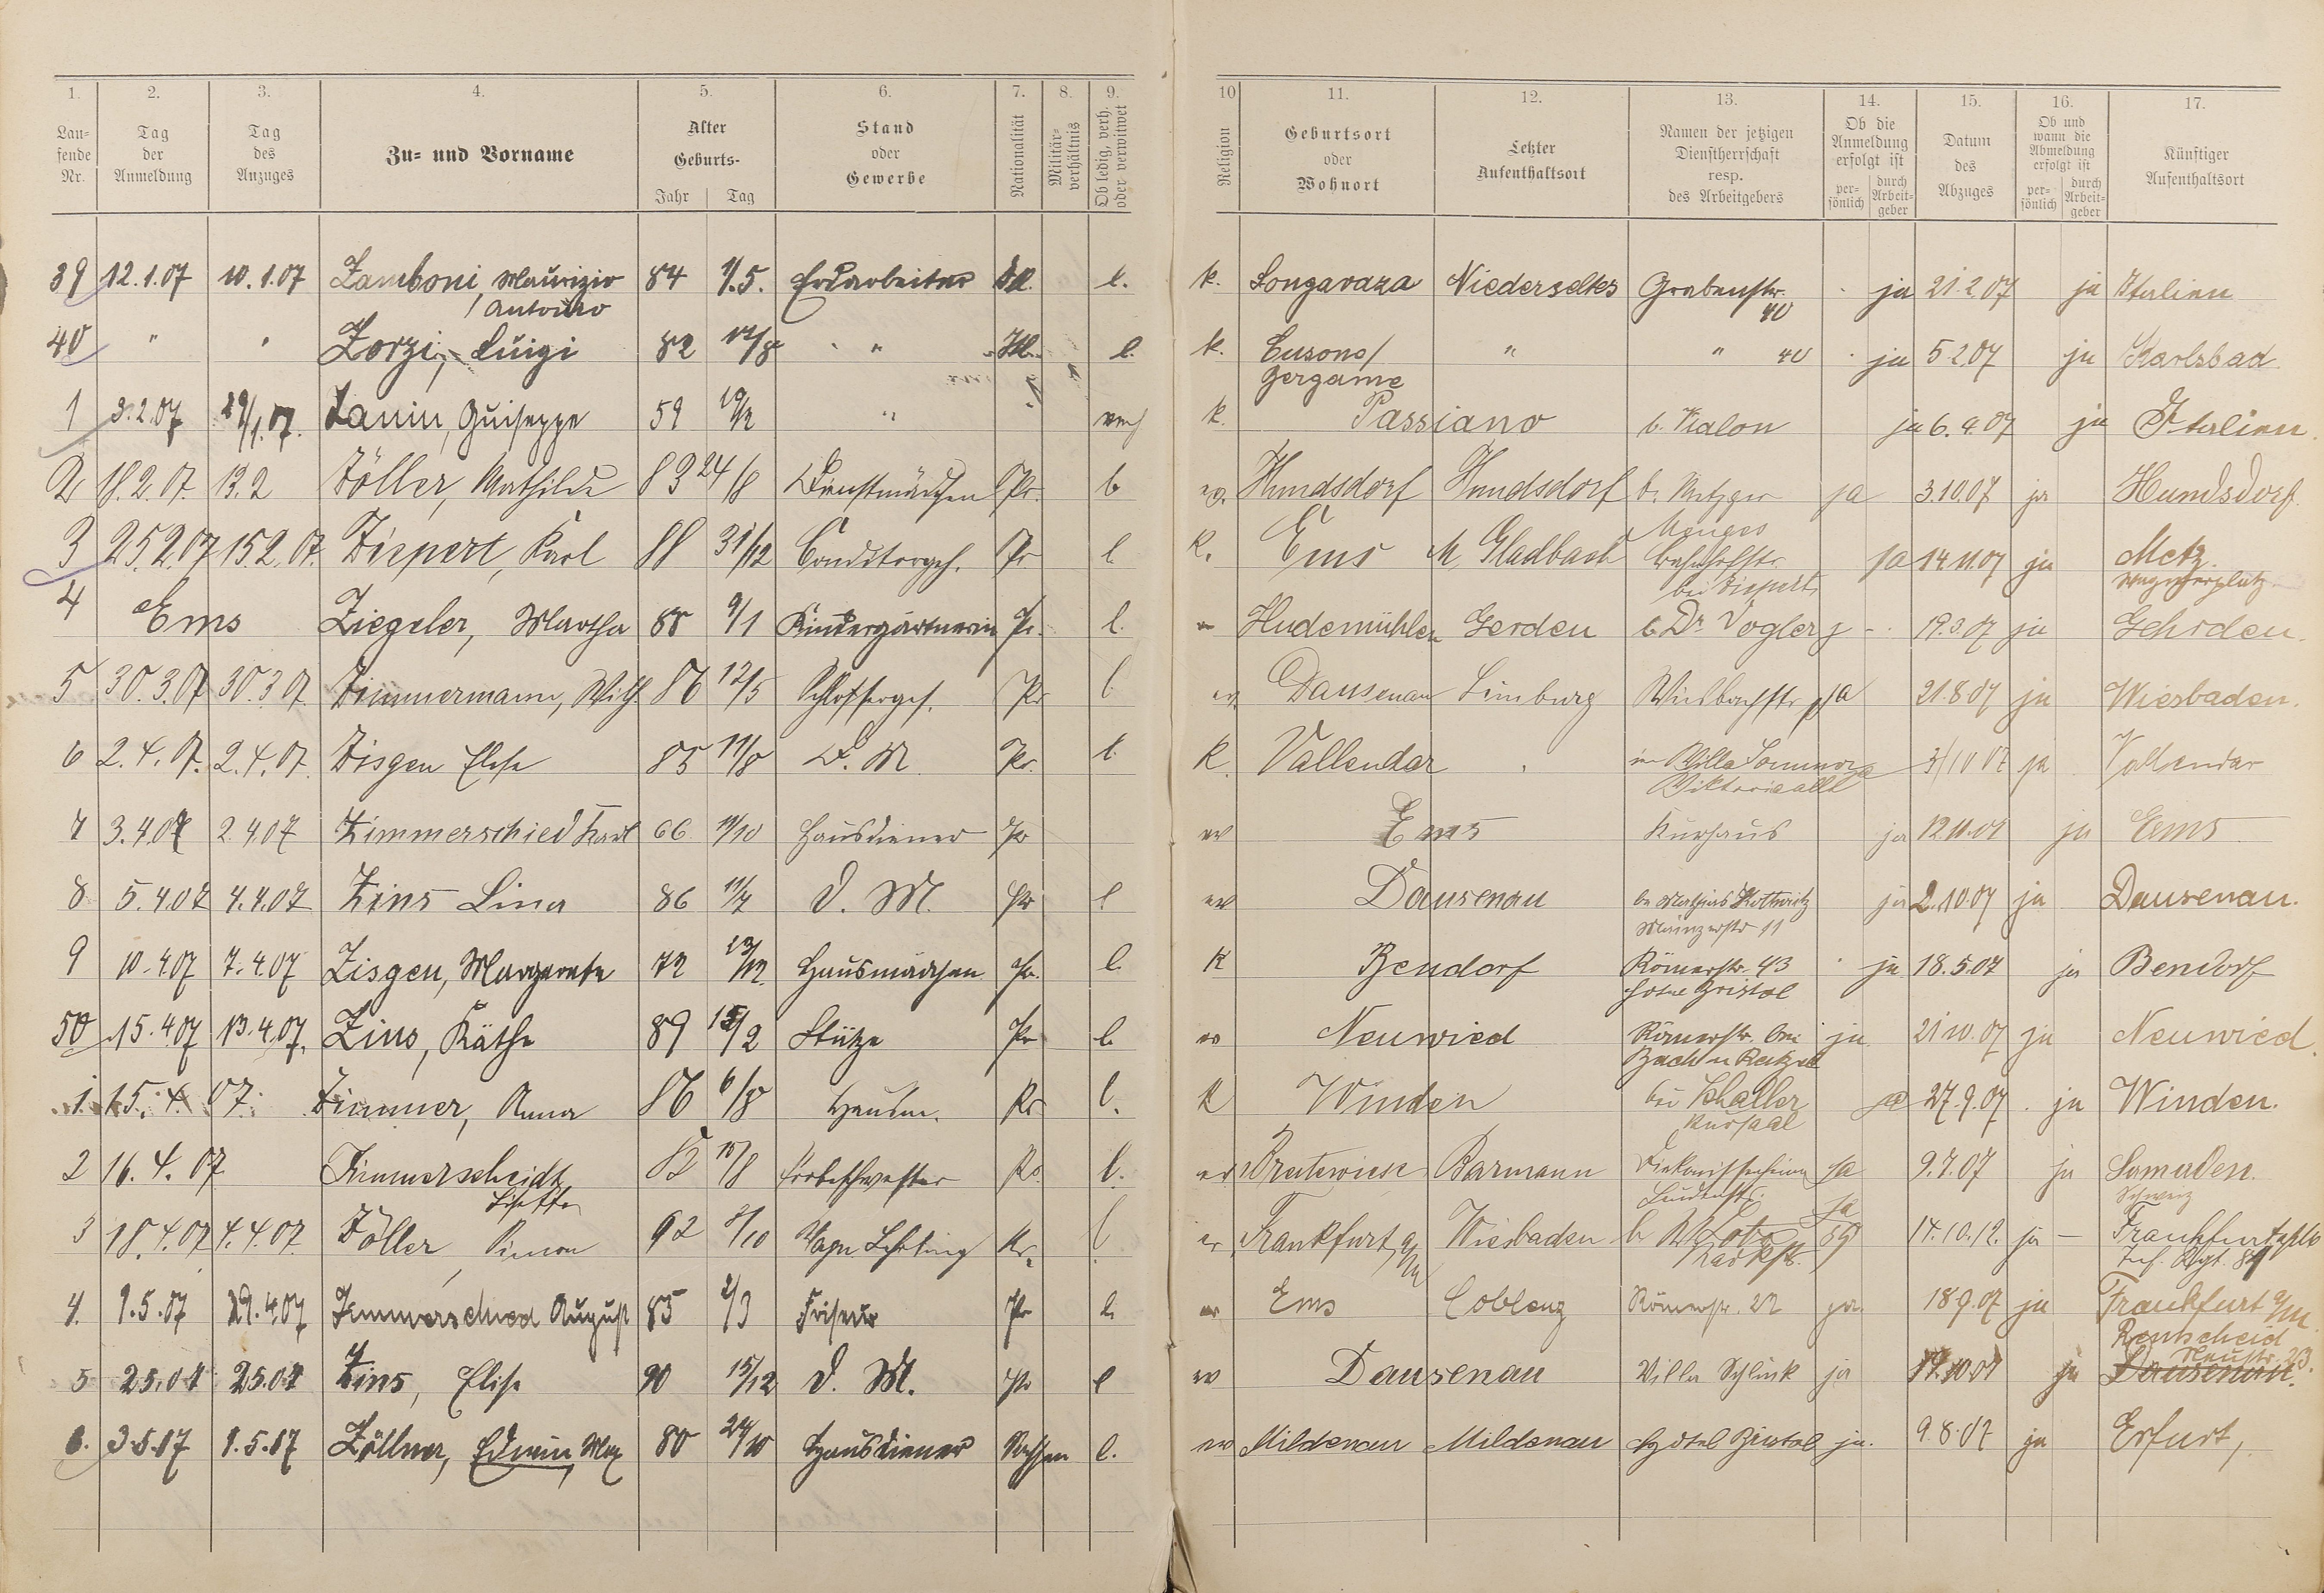 1. 2. 3. 4. 5. 6. 7. 8. 9. 10 11. 12. 13. 14. 15. 16. 17.
Laufende Nr. Tag der Anmeldung Tag des Anzuges Zu- und Vorname Alter Geburts- Jahr Tag Stand oder Gewerbe Nationalität Militärverhältnis Ob ledig, verh. oder verwitwet Religion Geburtsort oder Wohnort Letzter Aufenthaltsort Namen der jetzigen Dienstherrschaft resp. des Arbeitgebers Ob die Anmeldung erfolgt ist persönlich durch Arbeitgeber Datum des Abzuges Ob und wann die Abmeldung erfolgt ist persönlich durch Arbeitgeber Künftiger Aufenthaltsort
39 12.1.07 10.1.07 Zamboni, Maurizio 84 1.5. Erdarbeiter l. k. Longaraza Niederselters Grabenstr. ja 21.2.07 ja Italien
Antonio 40
40 " " Zorzi, Luigi 82 17/8 " l. k. Cusons/ " " 40 ja 5.2.07 ja Karlsbad
Gergame
1 3.2.07 29/1.07. Zanin, Guiseppe 59 19/2 " verh k. Passiano b. Vialon ja 6.4.07 ja Italien.
2 18.2.07. 13.2 Zöller, Mathilde 83 24/8 Dienstmädchen Pr. ev. Hundsdorf Hundsdorf b. Metzger ja 3.10.07 ja Hundsdorf.
Menges
3 25.2.07 15.2.07. Ziepert, Karl 88 31/12 Conditorgeh. Pr l. K. Ems M. Gladbach Bahnhofstr. ja 14.11.07 ja Metz.
bei Ziepert
4 Ems Ziegeler, Martha 88 9/1 Kindergärtnerin Pr. l. Hudemühlen Gerden b. Dr. Vogler 19.3.07 ja Gehrden.
5 30.3.07 30.3.07. Zimmermann, Wilh. 86 12/5 Schlosserges. Pr l ev. Dausenau Limburg ja 21.8.07 ja Wiesbaden.
6 2.4.07. 2.4.07. Zisgen Elise 85 11/8 D. M. Pr. l. K. Vallendar in Villa Sommer 3/10 07 ja Vallendar
Viktoriaalle
7 3.4.07 2.4.07 Zimmerschied Karl 66 11/10 Hausdiener Pr ev Ems Kurhaus ja 12.11.07 ja Ems
8 5.4.07 4.4.07 Zins Lina 86 11/7 D. M. Pr l. ev Dausenau ja 2.10.07 ja Dausenau.
Mainzerstr 11
9 10.4.07 7.4.07 Zisgen, Margarete 72 23/12. Hausmädchen Pr. l. K Bendorf Römerstr. 43 ja 18.5.07 ja Bendorf
Hotel Bristol
50 15.4.07 13.4.07. Zins, Käthe 89 15/2 Stütze Pr l. ev Neuwied Römerstr. bei ja 21.10.07 ja Neuwied.
1 15.4.07. Zimmer, Anna 86 6/8 Hausm. Pr l. K Winden bei Schaller ja 27.9.07. ja Winden.
Kursaal
2 16.4.07 Zimmerscheidt 82 18/8 Probeschwester Pr. l. ev Breitewiese Barmann Diakonissenheim ja 9.7.07 ja Samaden.
Lisette Schweiz
3 18.4.07 4.4.07. Zöller, Simon 92 8/10 Lehrling Pr. l ev Frankfurt a/M Wiesbaden ja 14.10.12. ja — Frankfurt
Inf. Rgt. 81
4. 1.5.07 29.4.07 Zimmerschied August 85 2/3 Friseur Pr l. ev Ems Coblenz Römerstr. 22 ja. 18.9.07 ja Frankfurt a/M.
Remscheid
5 2.5.07 2.5.07 Zins, Elise 90 15/12 D. M. Pr l ev Dausenau Villa Schlink ja 19.10.07 ja Dausenau.
6. 3.5.07 1.5.07 Zöllner, Edwin, Max 80 24/10 Hausdiener Sachsen l. ev Mildenau Mildenau Hotel Bristol ja. 9.8.07 ja Erfurt,